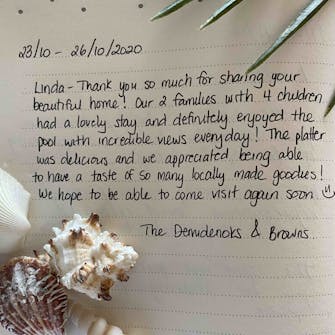 23/10 - 26/10/2020
Linda - Thank you so much for sharing your
beautiful home! Our 2 families with 4 children
had a lovely stay and definitely enjoyed the
pool with incredible views everyday! The platter
was delicious and we appreciated being able
to have a taste of so many locally made goodies!
We hope to be able to come visit again soon ☺
The & Browns...